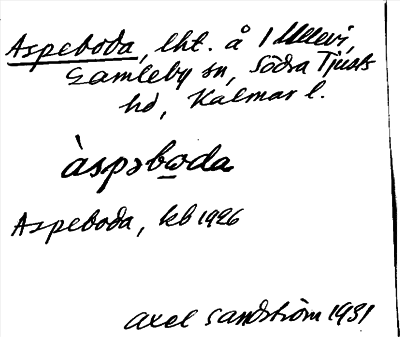 Aspeboda, lht. å 1 Ullevi,
Gamleby sn, Södra Tjusts
hd, Kalmar l.
àspəbω̲da
Aspeboda, kb 1926
Axel Sandström 1931